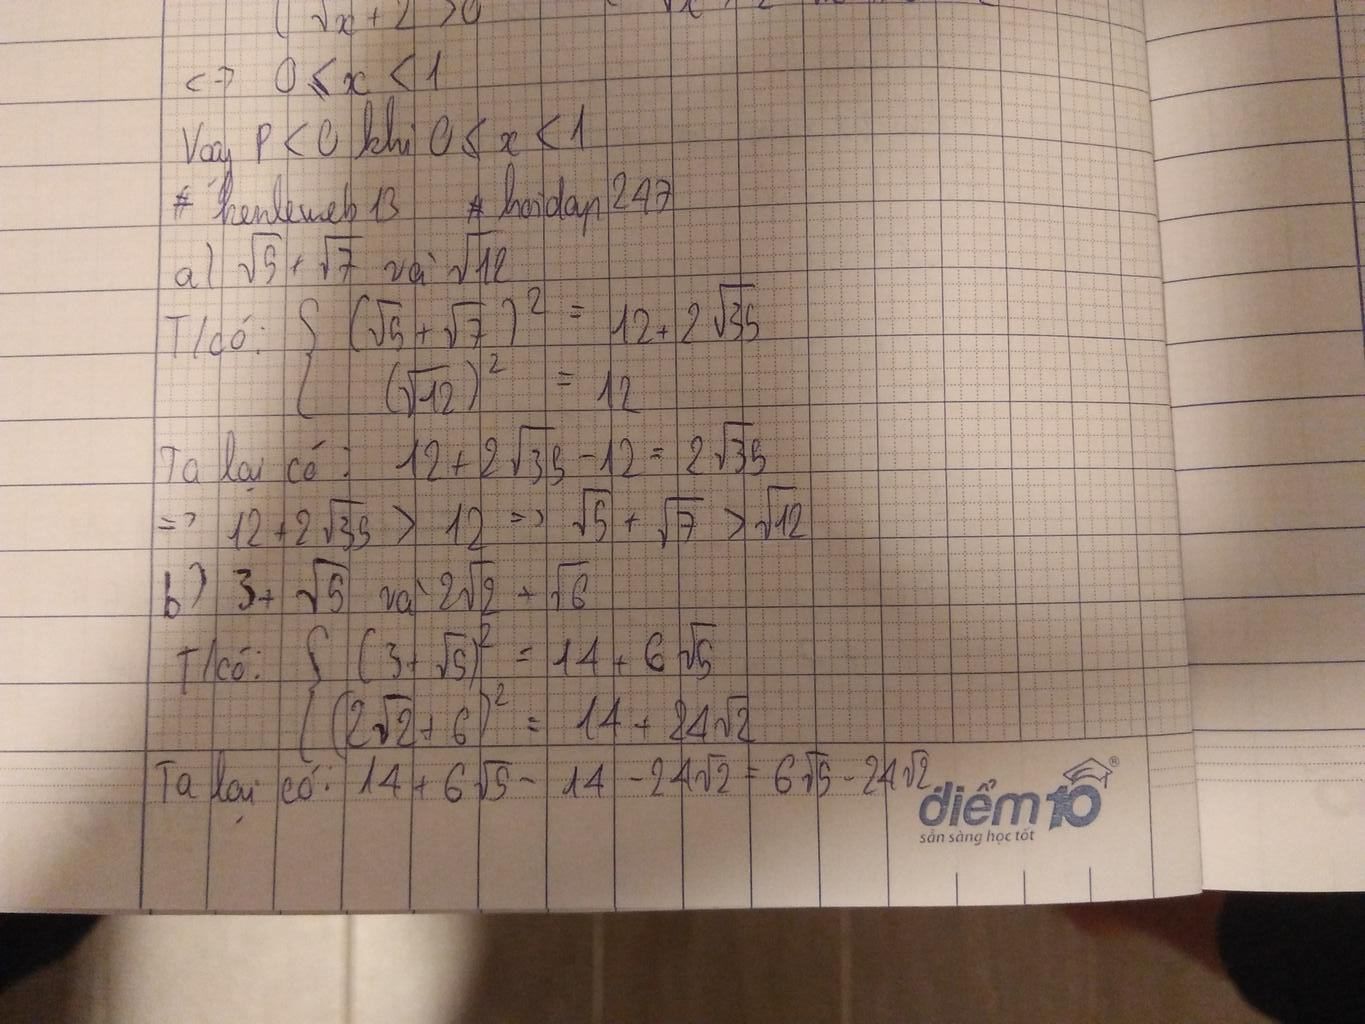 √x + 2 > 0
<=> 0 ≤ x < 1
Vậy P < 0 khi 0 ≤ x < 1
# henleweb13 # hoidap247
a) √5 + √7 và √12
T/có: { (√5 + √7)² = 12 + 2√35
(√12)² = 12
Ta lại có: 12 + 2√35 - 12 = 2√35
=> 12 + 2√35 > 12 => √5 + √7 > √12
b) 3 + √5 và 2√2 + √6
T/có: { (3 + √5)² = 14 + 6√5
(2√2 + 6)² = 14 + 24√2
Ta lại có: 14 + 6√5 - 14 - 24√2 = 6√5 - 24√2
điểm 10®
sẵn sàng học tốt